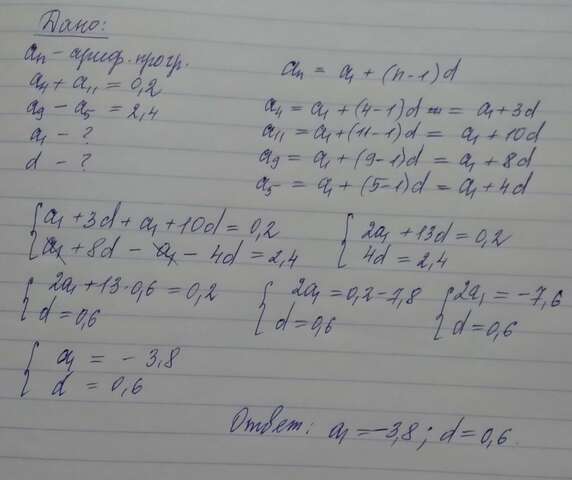 Дано:
aₙ - ариф. прогр.
a₄ + a₁₁ = 0,2
a₉ - a₅ = 2,4
a₁ - ?
d - ?
aₙ = a₁ + (n-1)d
a₄ = a₁ + (4-1)d = a₁ + 3d
a₁₁ = a₁ + (11-1)d = a₁ + 10d
a₉ = a₁ + (9-1)d = a₁ + 8d
a₅ = a₁ + (5-1)d = a₁ + 4d
{ a₁ + 3d + a₁ + 10d = 0,2 { 2a₁ + 13d = 0,2
a₁ + 8d - a₁ - 4d = 2,4 4d = 2,4
{ 2a₁ + 13·0,6 = 0,2 { 2a₁ = 0,2 - 7,8 { 2a₁ = -7,6
d = 0,6 d = 0,6 d = 0,6
{ a₁ = - 3,8
d = 0,6
Ответ: a₁ = -3,8; d = 0,6.